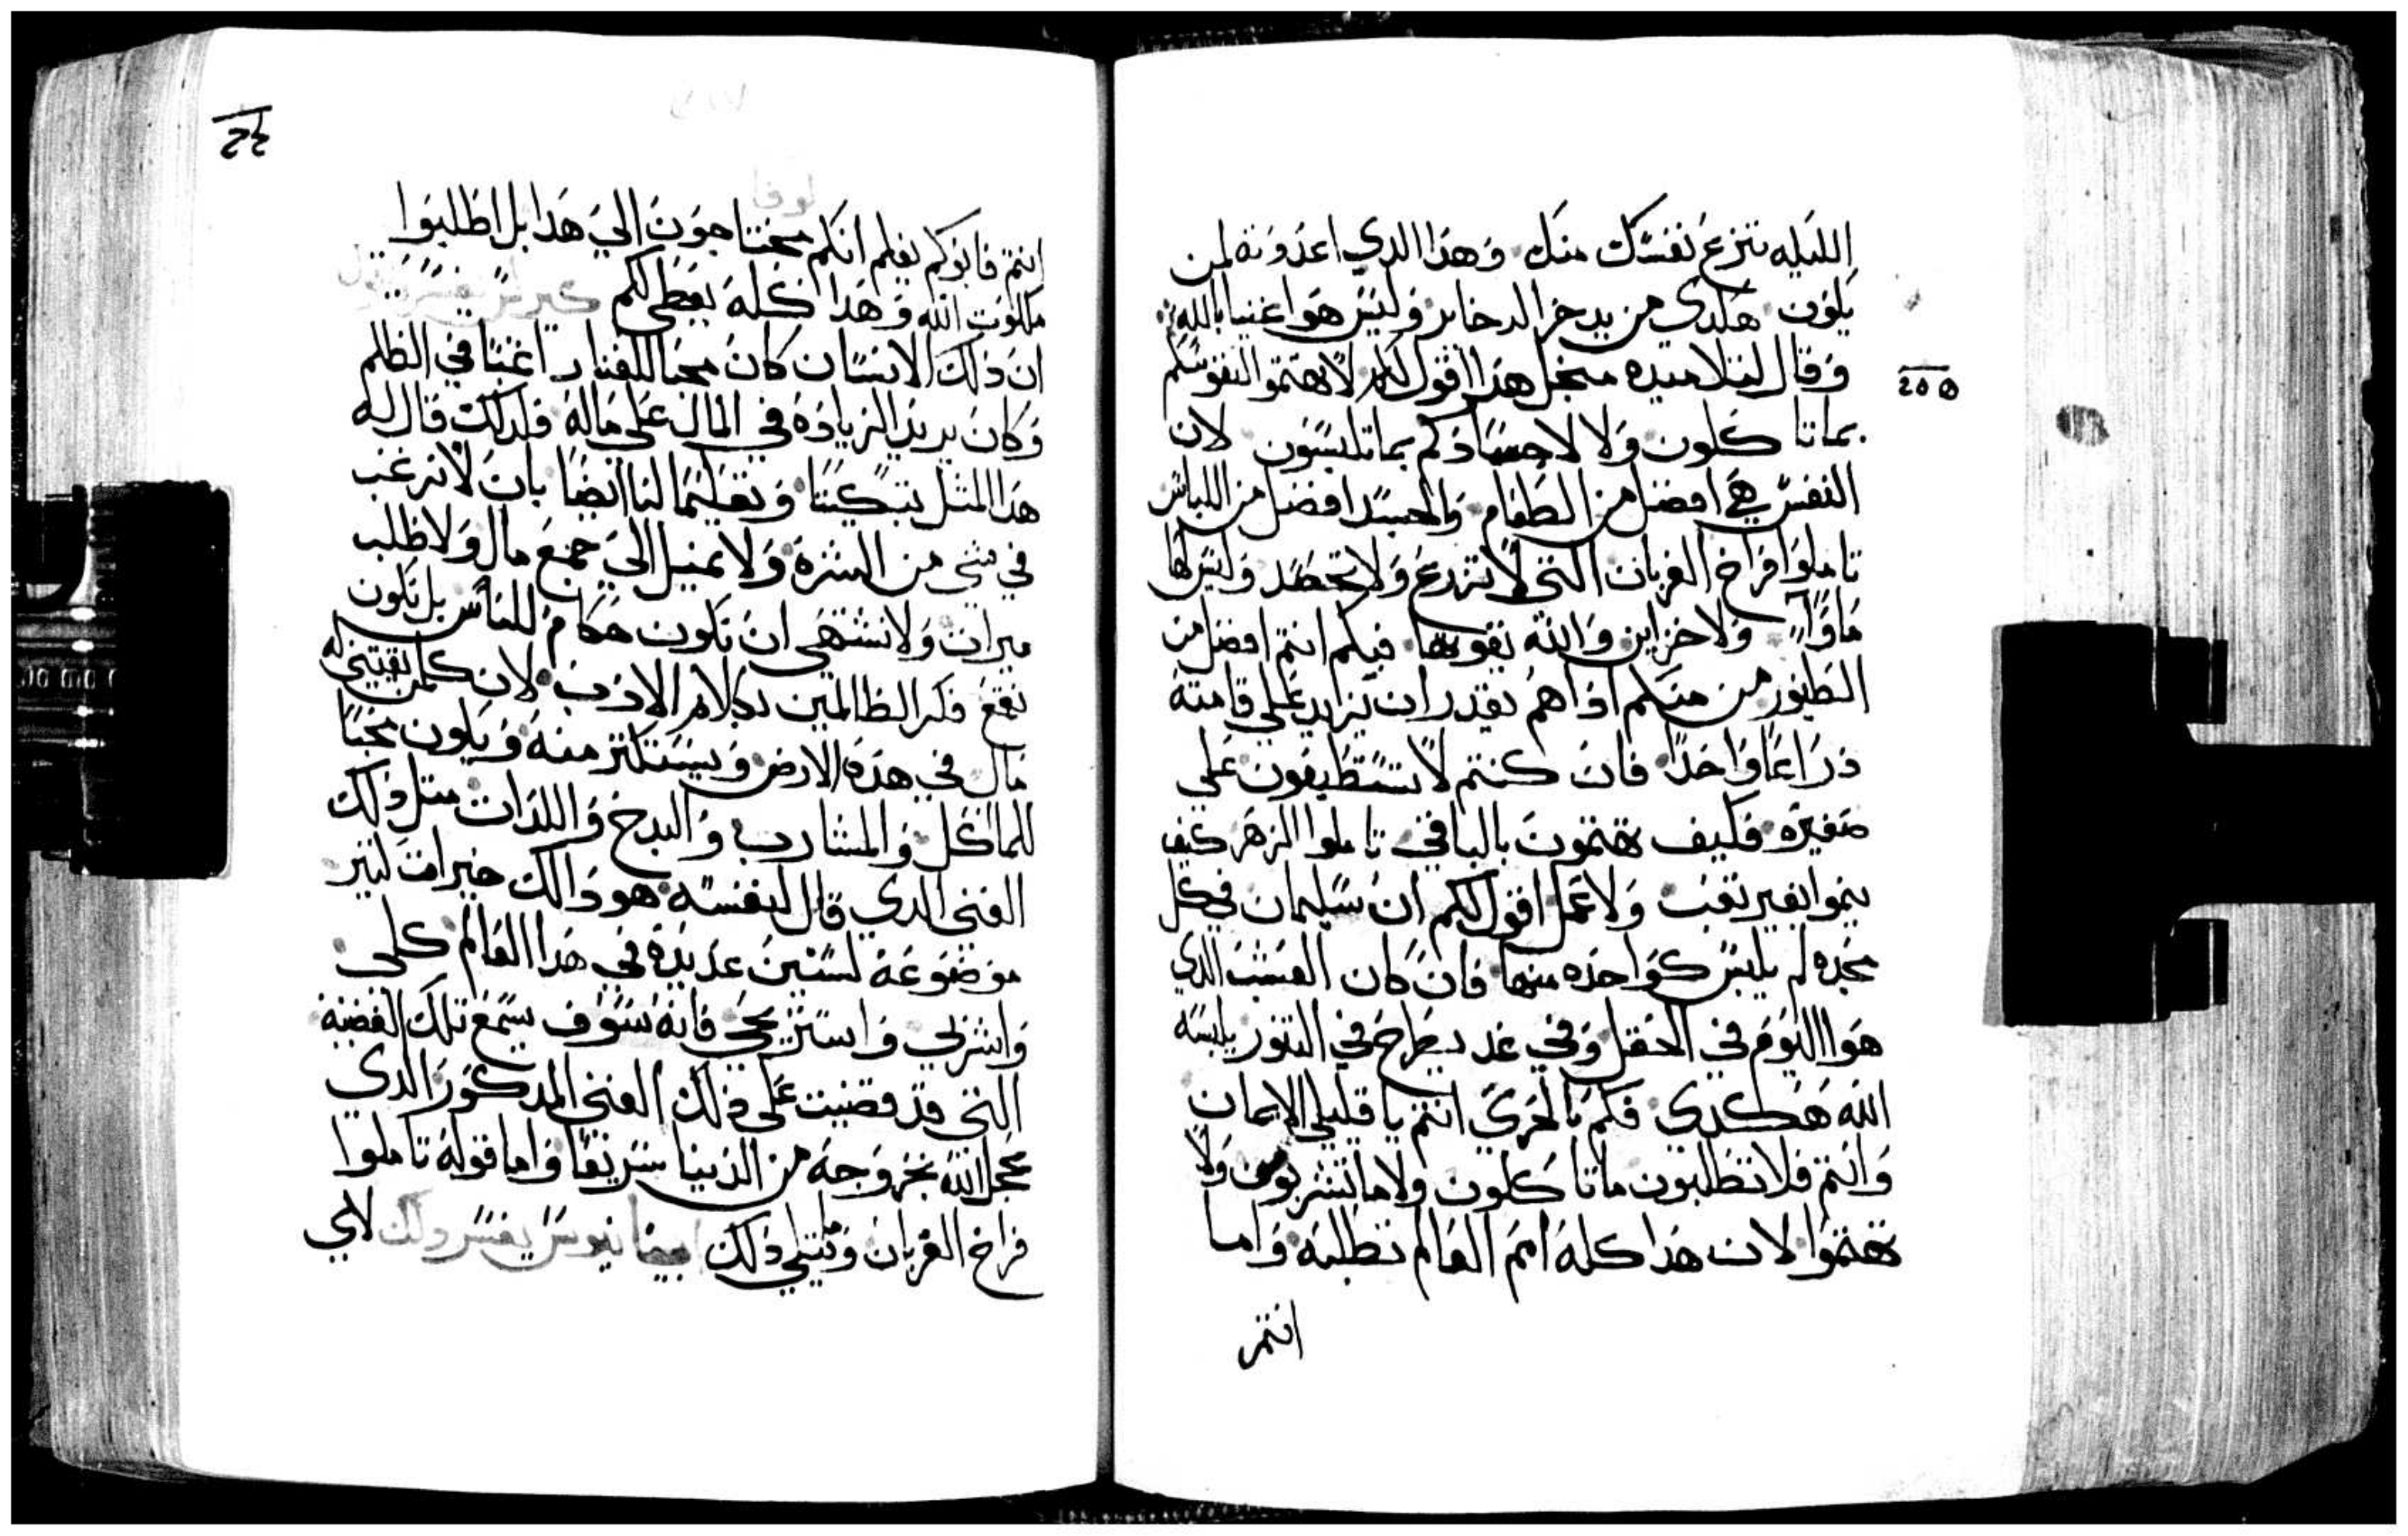 الليله تنزع نفسك منك وهذا الدي اعددته لمن
يكون هكدي من يدخر الدخاير وليس هوا غنيا بالله
وقال لتلاميده منجل هذا اقول لكم لا تهتموا لنفوسكم
بما تاكلون ولا لاجسادكم بما تلبسون لان
النفس هي افضل من الطعام والجسد افضل من اللباس
تاملوا فراخ الغربان التي لا تزرع ولا تحصد وليس لها
ماوا ولا خزاين والله يقوتها فبكم انتم افضل من
الطيور من منكم ادا هم يقدر ان يزايد علي قامته
ذراعا واحدا فان كنتم لا تستطيعون علي
صغيره فكيف تهتمون بالباقي تاملوا الزهر كيف
ينموا بغير تعب ولا عمل اقول لكم ان سليمان في كل
مجده لم يلبس كواحده منها فان كان العشب الدي
هوا اليوم في الحقل وفي غد يطرح في التنور يلبسه
الله هكدي فكم بالحري انتم يا قليلي الايمان
وانتم فلا تطلبون ما تاكلون ولا ما تشربون ولا
تهتموا لان هدا كله امم العالم تطلبه واما
انتم
٢٥٥
لوقا
انتم فابوكم يعلم انكم محتاجون الي هدا بل اطلبوا
ملكوت الله وهدا كله يعطي لكم
ان ذلك الانسان كان محبا للقنا راغبا في الظلم
وكان يريد الزياده في المال علي ماله فلدلك قال له
هدا المثل تبكيتا وتعليما لنا ايضا بان لا نرغب
في شي من الشره ولا نميل الي جمع مال ولا طلب
ميرات ولا نشتهي ان نكون حكام للناس بل نكون
نقمع فكر الظالمين بكلام الادب لان كلمن يقتني له
مال في هده الارض ويستكتر منه ويكون محبا
للماكل والمشارب والبدخ واللدات متل ذلك
الغني الدي قال لنفسه هودا لك خيرات كتير
موضوعه لسنين عديده في هدا العالم كلي
واشربي واستريحي فانه سوف يسمع تلك القضيه
التي قد قضيت علي ذلك الغني المدكور الدي
عجل الله بخروجه من الدنيا سريعا واما قوله تاملوا
فراخ الغربان وما يتلي ذلك يفسر ذلك لاي